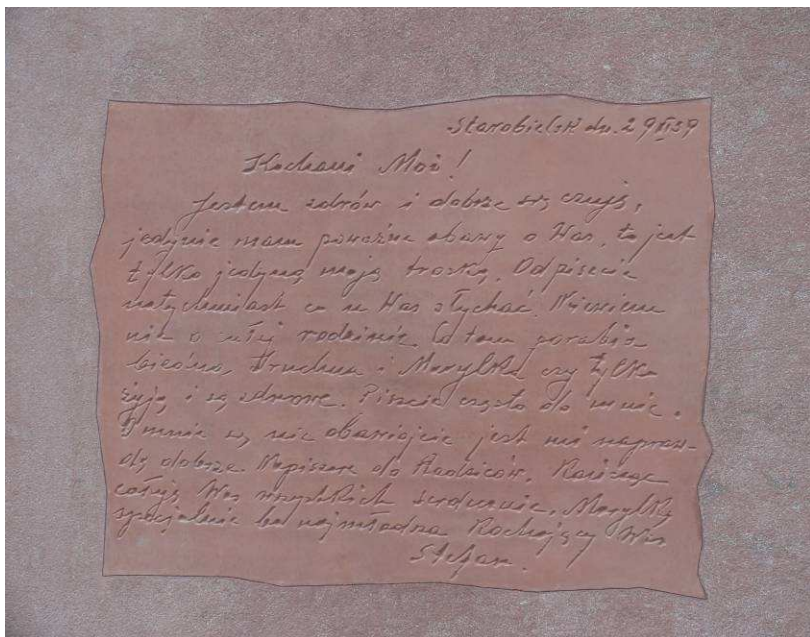 Starobielsk dn. 29 XI 39
Kochani Moi!
Jestem zdrów i dobrze się czuję,
jedynie mam poważne obawy o Was, to jest
tylko jedyną moją troską. Odpiszcie
natychmiast co u Was słychać. Nie wiem
nic o całej rodzinie. Co tam porabia
biedna, i Marylka czy tylko
żyją i są zdrowe. Piszcie często do mnie.
O mnie się nie obawiajcie jest mi napraw-
dę dobrze. Napiszcie do Rodziców. Kończąc
całuję Was wszystkich serdecznie, Marylkę
specjalnie bo najmłodsza Kochający Was
Stefan.